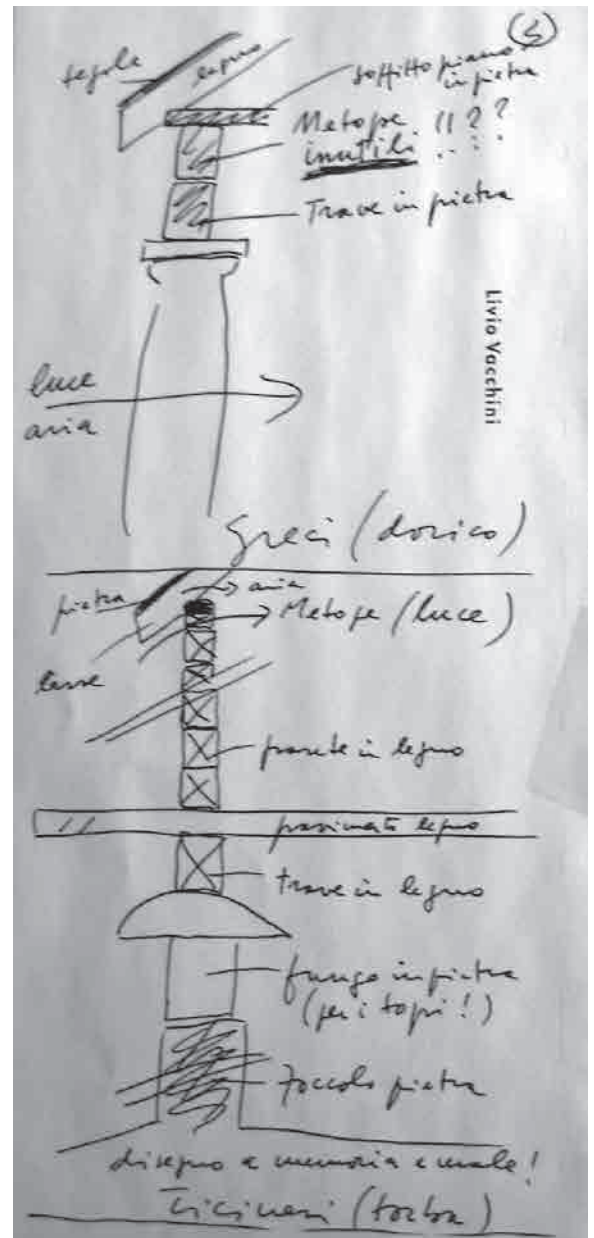 (3)
tegole
legno
soffitto piano
in pietra
Metope !! ??
inutili
Trave in pietra
Livio Vacchini
luce
aria
Greci (dorico)
pietra
aria
Metope (luce)
parete in legno
pavimento legno
trave in legno
fungo in pietra
(per i topi!)
Zoccolo pietra
disegno a memoria e male!
Ticinesi (torba)